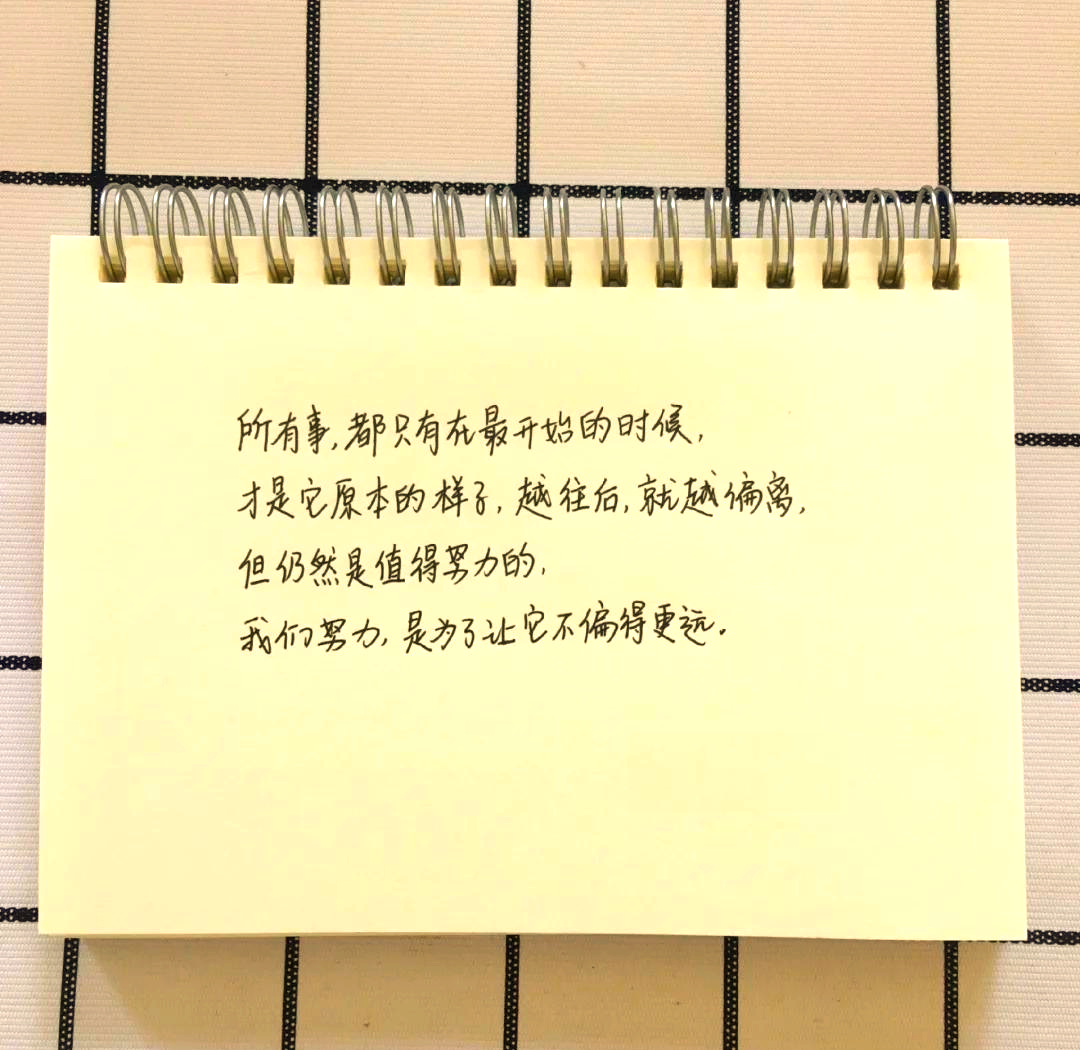 所有事,都只有在最开始的时候,
才是它原本的样子,越往后,就越偏离,
但仍然是值得努力的,
我们努力,是为了让它不偏得更远。